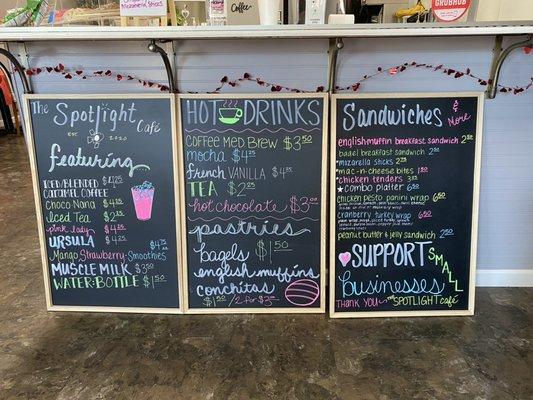 Coffee
GRUBHUB
The Spotlight Café
EST. 2020
featuring
ICED/BLENDED $4.25
CARAMEL COFFEE
CHOCO NANA $4.25
ICED TEA $2.25
pink lady $4.25
URSULA $4.25
Mango Strawberry Smoothies $4.75
MUSCLE MILK $3.50
WATER BOTTLE $1.50
HOT DRINKS
COFFEE MED BREW $3.50
mocha $4.25
french VANILLA $4.25
TEA $2.25
hot chocolate $3.00
pastries
$1.50
bagels
english muffins
conchitas
$1.50 / 2 for $3.00
SANDWICHES & More
english muffin breakfast sandwich 2.50
bagel breakfast sandwich 2.50
mozarella sticks 2.75
mac-n-cheese bites 1.50
chicken tenders
combo platter 6.25
chicken pesto panini wrap 6.50
cranberry turkey wrap 6.50
peanut butter & jelly sandwich 2.50
SUPPORT
SMALL
Businesses
THANK YOU SPOTLIGHT café